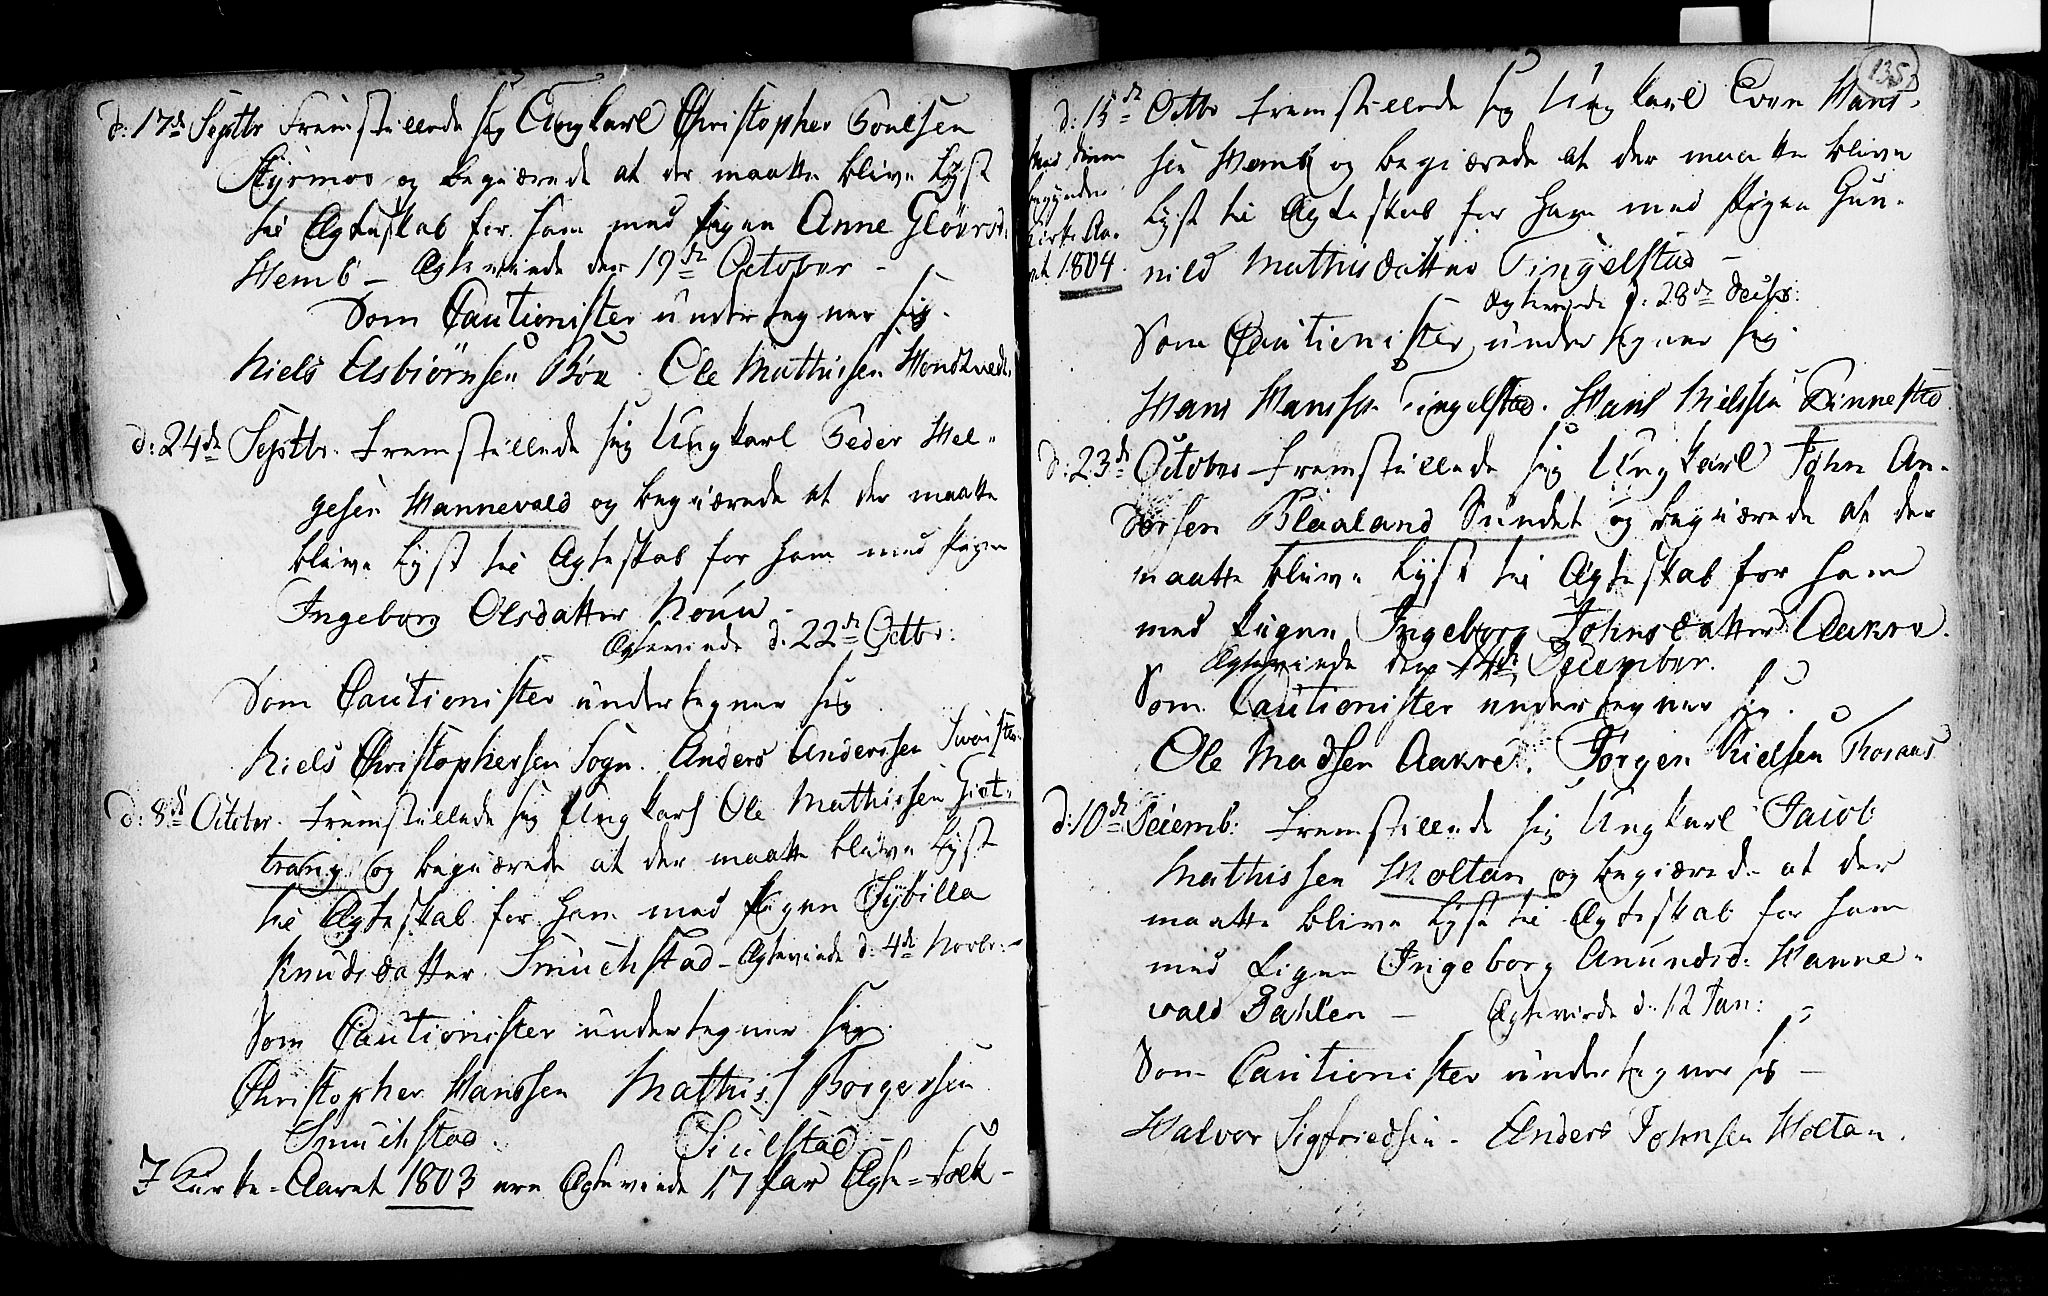 d: 17de Septbr Fremstillede sig Ungkarl Christopher Poulsen
Styrmoe og begiærede at der maatte blive Lyst
til Ægteskab for ham med Pigen Anne Glöersd.
Hemb – Ægteviede den 19de October –
Som Cautionister undertegner sig.
Niels Asbiörnsen Böe. Ole Mathisen
d: 24de Septbr. Fremstillede sig Ungkarl Peder Hel-
gesen Hannevald og begiærede at der maatte
blive Lyst til Ægteskab for ham med Pigen
Ingeborg Olsdatter
Ægteviede d: 22de Octbr:
Som Cautionister undertegner sig
Niels Christophersen Sogn. Anders Andersen
d: 8de Octobr. Fremstillede sig Ungkarl Ole Mathissen Giet-
trang og begiærede at der maatte blive Lyst
til Ægteskab for ham med Pigen Sybilla
Knudsdatter Smuchstad – Ægteviede d: 4de Novbr: –
Som Cautionister undertegner sig.
Christopher Hanssen Mathis Borgersen
Smuchstad.
I Kirke-Aaret 1803 ere Ægteviede 17 Par Ægte-Folk –
135
d: 15de Octbr Fremstillede sig Ungkarl Even Hans-
Med denne
sen Hemb og begiærede at der maatte blive
begynder
Lyst til Ægteskab for ham med Pigen Gun-
Kirke Aa-
ret 1804.
nild Mathisdatter Tingelstad –
Ægteviede d: 28de Decbr:
Som Cautionister undertegner sig
Hans Hanssen Tingelstad. Hans Nielssen
d: 23de October Fremstillede sig Ungkarl John An-
dersen Blaaland Sundet og begiærede at der
maatte blive Lyst til Ægteskab for ham
med Pigen Ingeborg Johnsdatter Aakre.
Ægteviede den December.
Som Cautionister undertegner sig.
Ole Madsen Aakre. Jörgen Nielsen
d: 10de Decemb: Fremstillede sig Ungkarl Jacob
Mathissen Moltan og begiærede at der
maatte blive Lyst til Ægteskab for ham
med Pigen Ingeborg Anundsd: Hanne-
vald Dahlen – Ægteviede d: 12 Jan:
Som Cautionister undertegner sig –
Halvor Sigfriedsen – Anders Johnsen Moltan.